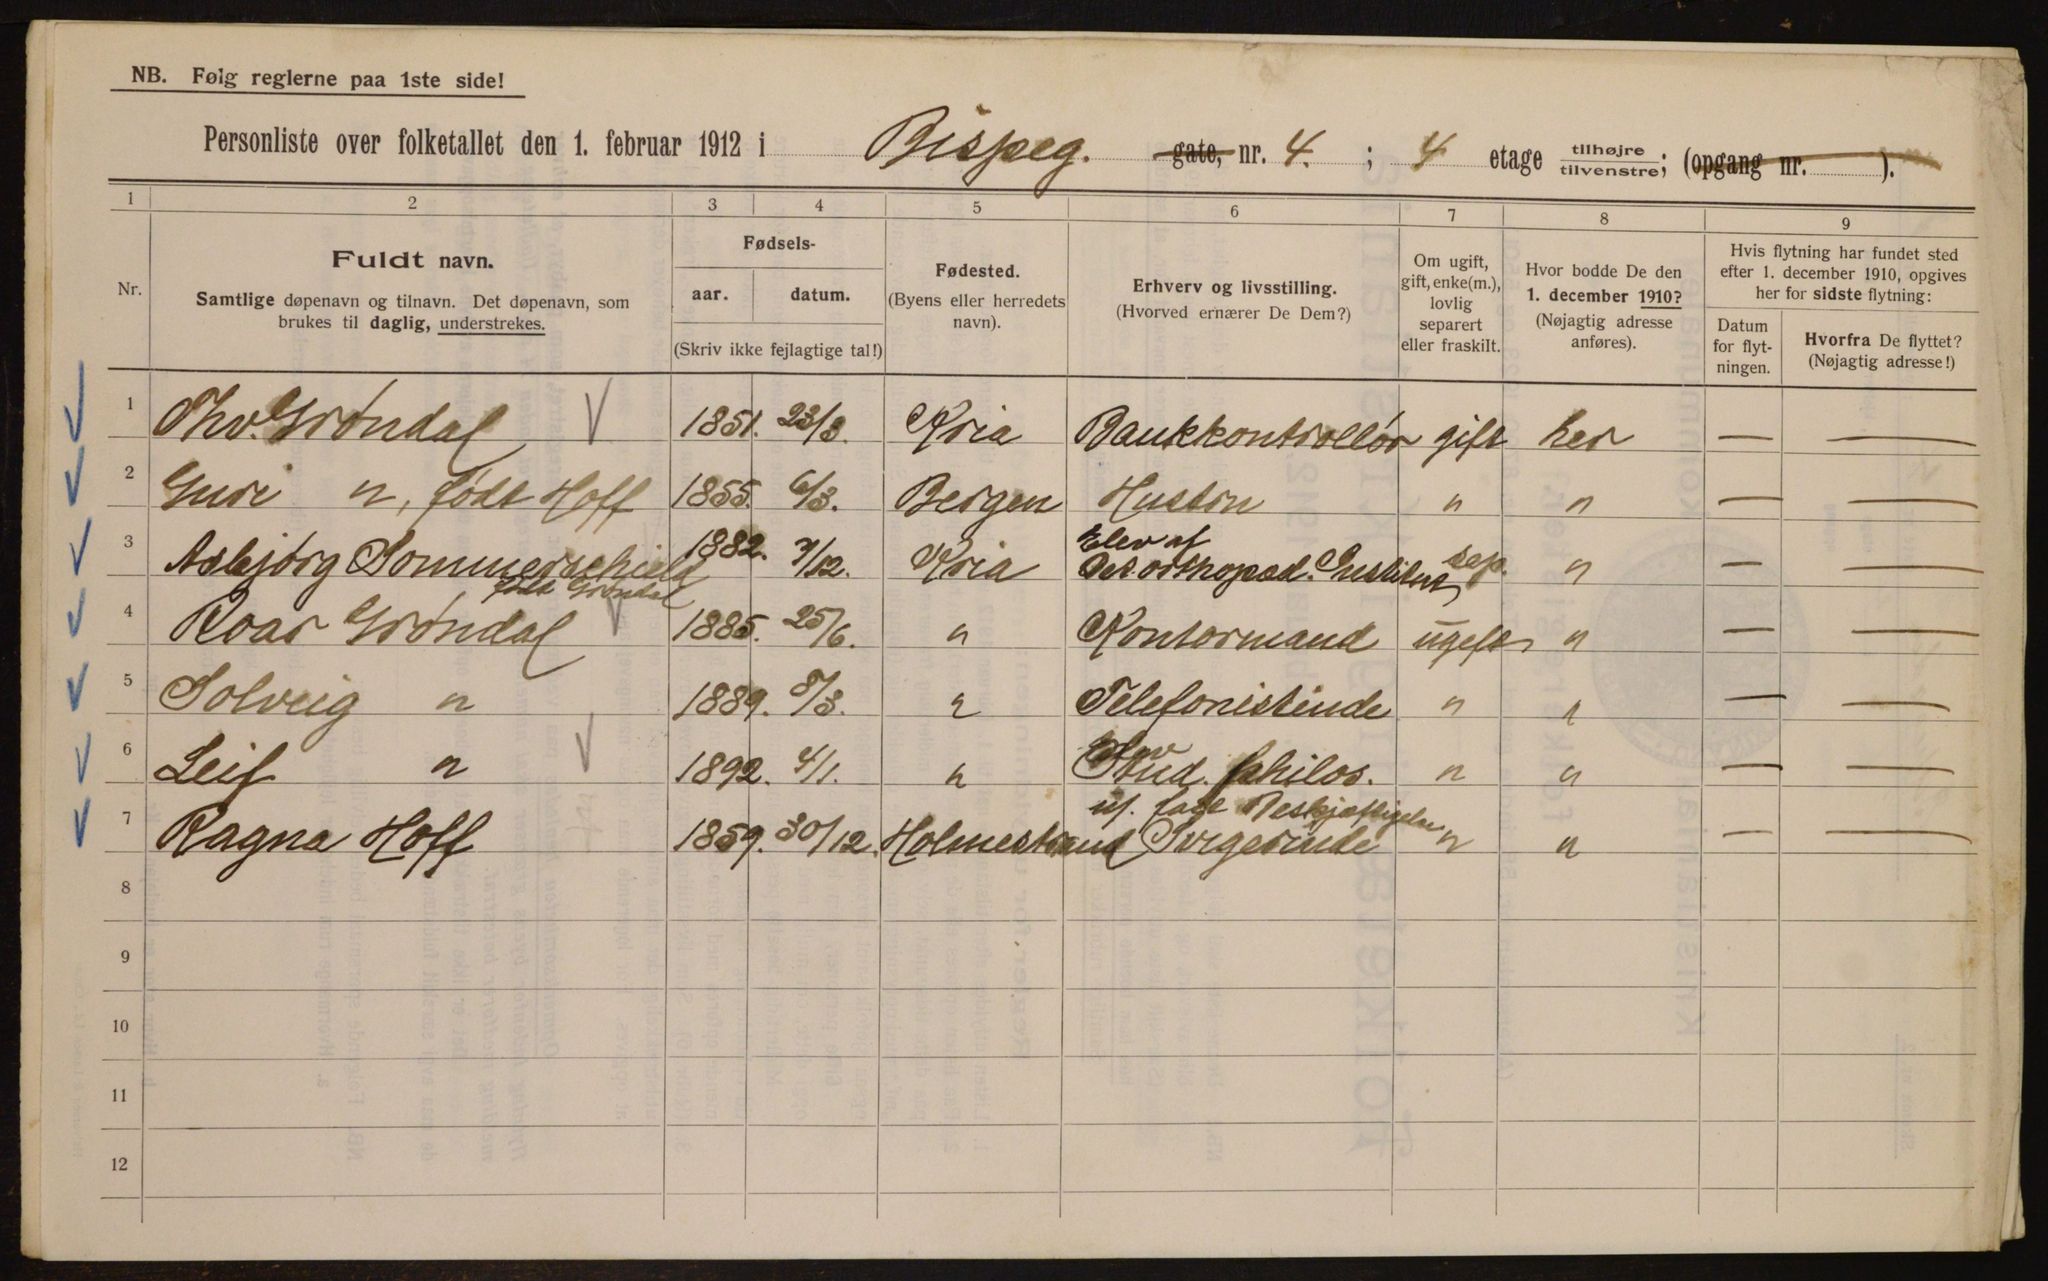 NB. Følg reglerne paa 1ste side!
Personliste over folketallet den 1. februar 1912 i Bispeg. gate, nr. 4. ; 4 etage tilhøjre/tilvenstre; (opgang nr. ).
1 2 3 4 5 6 7 8 9
Nr.
Fuldt navn.
Samtlige døpenavn og tilnavn. Det døpenavn, som
brukes til daglig, understrekes.
Fødsels-
aar. datum.
(Skriv ikke fejlagtige tal!)
Fødested.
(Byens eller herredets
navn).
Erhverv og livsstilling.
(Hvorved ernærer De Dem?)
Om ugift,
gift, enke(m.),
lovlig
separert
eller fraskilt.
Hvor bodde De den
1. december 1910?
(Nøjagtig adresse
anføres).
Hvis flytning har fundet sted
efter 1. december 1910, opgives
her for sidste flytning:
Datum
for flyt-
ningen.
Hvorfra De flyttet?
(Nøjagtig adresse!)
1 Thv. Grøndal 1851. 23/3. Kria Bankkontrollør gift her — —
2 Guri " , født Hoff 1855. 6/3. Bergen Hustru " " — —
3 Asbjørg Sommerschield født Grøndal 1882. 7/12. Kria Elev af Det orthopæd. Institut sep. " — —
4 Roar Grøndal 1885. 25/6. " Kontormand ugift " — —
5 Solveig " 1889. 8/3. " Telefonistinde " " — —
6 Leif " 1892. 4/1. " Stud. philos. " " — —
7 Ragna Hoff 1859. 30/12. Holmestrand uf. fast Beskjæftigelse Syerinde " " — —
8
9
10
11
12